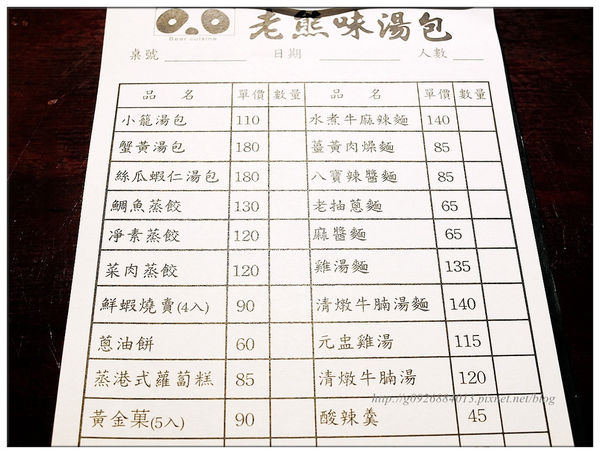 Bear cuisine
老熊味湯包
桌號 日期 人數
品 名 單價 數量 品 名 單價 數量
小籠湯包 110 水煮牛麻辣麵 140
蟹黃湯包 180 薑黃肉燥麵 85
絲瓜蝦仁湯包 180 八寶辣醬麵 85
鯛魚蒸餃 130 老抽蔥麵 65
凈素蒸餃 120 麻醬麵 65
菜肉蒸餃 120 雞湯麵 135
鮮蝦燒賣(4入) 90 清燉牛腩湯麵 140
蔥油餅 60 元盅雞湯 115
蒸港式蘿蔔糕 85 清燉牛腩湯 120
黃金菓(5入) 90 酸辣羹 45
http://g0926884013.pixnet.net/blog